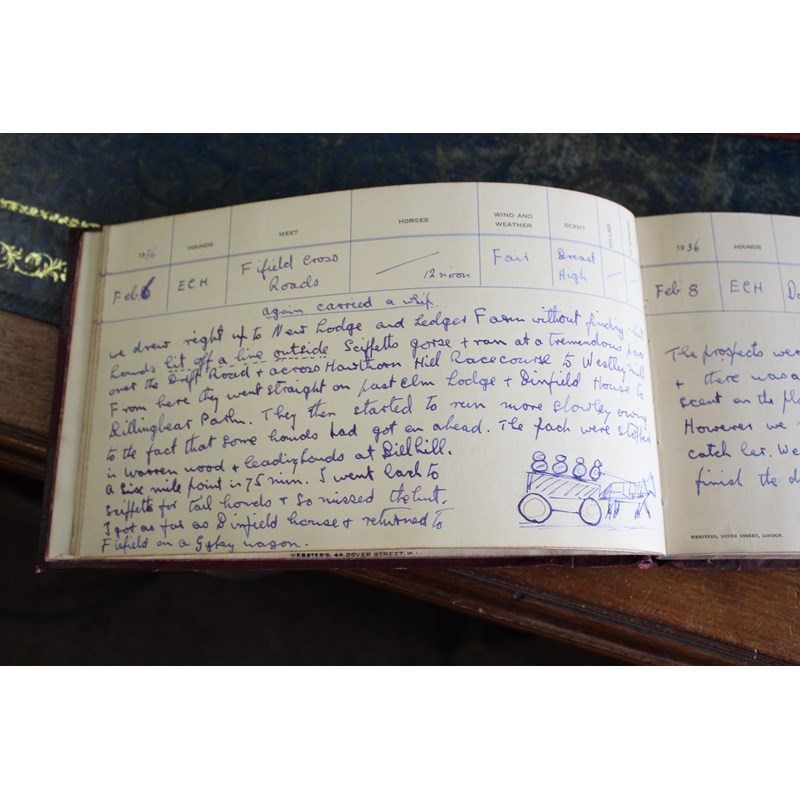 1936 HOUNDS MEET HORSES WIND AND WEATHER SCENT
Feb 6 ECH Fifield Cross Roads 12 noon Fair Breast High
again carried a whip.
we drew right up to New Lodge and Ledger Farm without finding
hounds hit off a line outside Sciffetts gorse + ran at a tremendous pace
over the Drift Road + across Hawthorn Hill Racecourse to Westley mill
From here they went straight on past Elm Lodge + Binfield House to
Billingbear Park. They then started to run more slowley owing
to the fact that some hounds had got on ahead. The pack were stopped
in Warren wood + leading hounds at Bill hill.
A six mile point in 75 min. I went back to
Sciffetts for tail hounds + so missed the hunt.
I got as far as Binfield house + returned to
Fifield on a Gypsy wagon.
WEBSTER'S, 44, DOVER STREET, W.1.
1936 HOUNDS
Feb 8 ECH
The prospects were
+ there was a
scent on the
However we
catch her. We
finish the
WEBSTERS, DOVER STREET, LONDON.